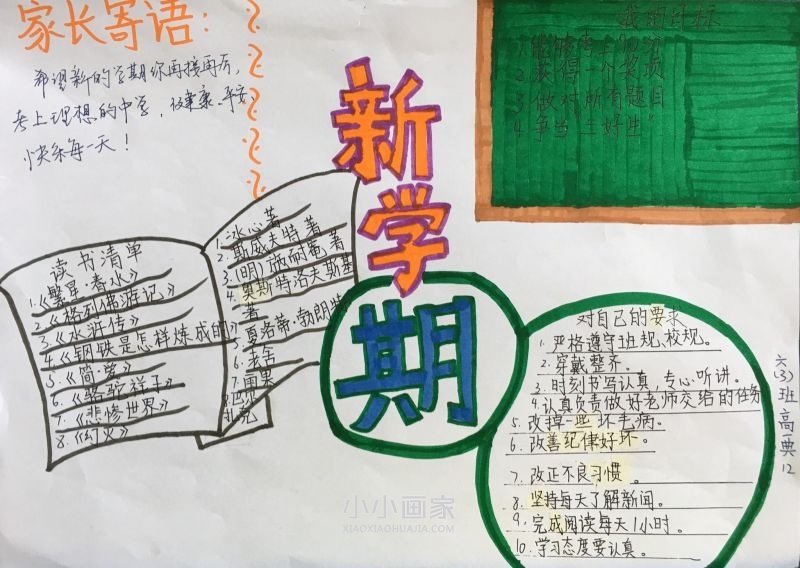 家长寄语:
希望新的学期你再接再厉,
考上理想的中学,健康、平安,
快乐每一天!
我的目标
1. 能够考上90分
2. 获得一个奖项
3. 做对所有题目
4. 争当"三好生"
新学期
读书清单
1.《繁星·春水》
2.《格列佛游记》
3.《水浒传》
4.《钢铁是怎样炼成的》
5.《简·爱》
6.《骆驼祥子》
7.《悲惨世界》
8.《灼灾》
1. 冰心著
2. 斯威夫特著
3. (明)施耐庵著
4. 奥斯特洛夫斯基
著
5. 夏洛蒂·勃朗特
6. 老舍
7. 雨果
8. 巴
扎克
对自己的要求
1. 严格遵守班规、校规。
2. 穿戴整齐。
3. 时刻书写认真,专心听讲。
4. 认真负责做好老师交给的任务
5. 改掉一些坏毛病。
6. 改善纪律好坏。
7. 改正不良习惯。
8. 坚持每天了解新闻。
9. 完成阅读每天1小时。
10. 学习态度要认真。
六(3)班 高一典 12
小小画家
XIAOXIAOHUAJIA.COM